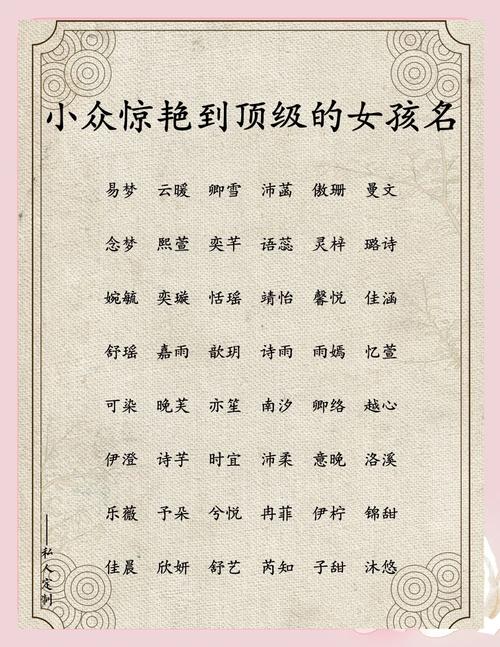 小众惊艳到顶级的女孩名
易梦 云暖 卿雪 沛菡 傲珊 曼文
念梦 熙萱 奕芊 语蕊 灵梓 璐诗
婉毓 奕璇 恬瑶 靖怡 馨悦 佳涵
舒瑶 嘉雨 歆玥 诗雨 雨嫣 忆萱
可染 晚芙 亦笙 南汐 卿络 越心
伊澄 诗芋 时宜 沛柔 意晚 洛溪
乐薇 予朵 兮悦 冉菲 伊柠 锦甜
佳晨 欣妍 舒艺 芮知 子甜 沐悠
——私人定制